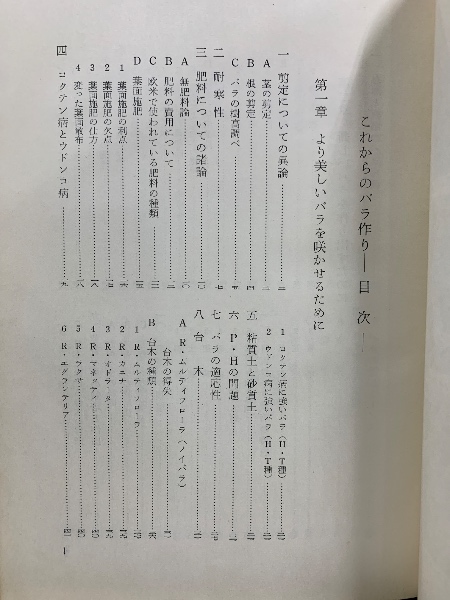 これからのバラ作り―目次―
第一章　より美しいバラを咲かせるために
一　剪定についての異論
A　茎の剪定
B　根の剪定
C　バラの樹高調べ
二　耐寒性
三　肥料についての諸論
A　無肥料論
B　肥料の費用について
C　欧米で使われている肥料の種類
D　葉面施肥
1　葉面施肥の利点
2　葉面施肥の欠点
3　葉面施肥の仕方
4　変った葉面散布
四　コクテン病とウドンコ病
1　コクテン病に強いバラ（H・T種）
2　ウドンコ病に強いバラ（H・T種）
五　粘質土と砂質土
六　P・Hの問題
七　バラの適応性
八　台木
A　R・ムルティフローラ（ノイバラ）
台木の得失
B　台木の種類
1　R・ムルティフローラ
2　R・カニナ
3　R・オドラータ
4　R・マネッティ
5　R・ラクサ
6　R・エグランテリア
1